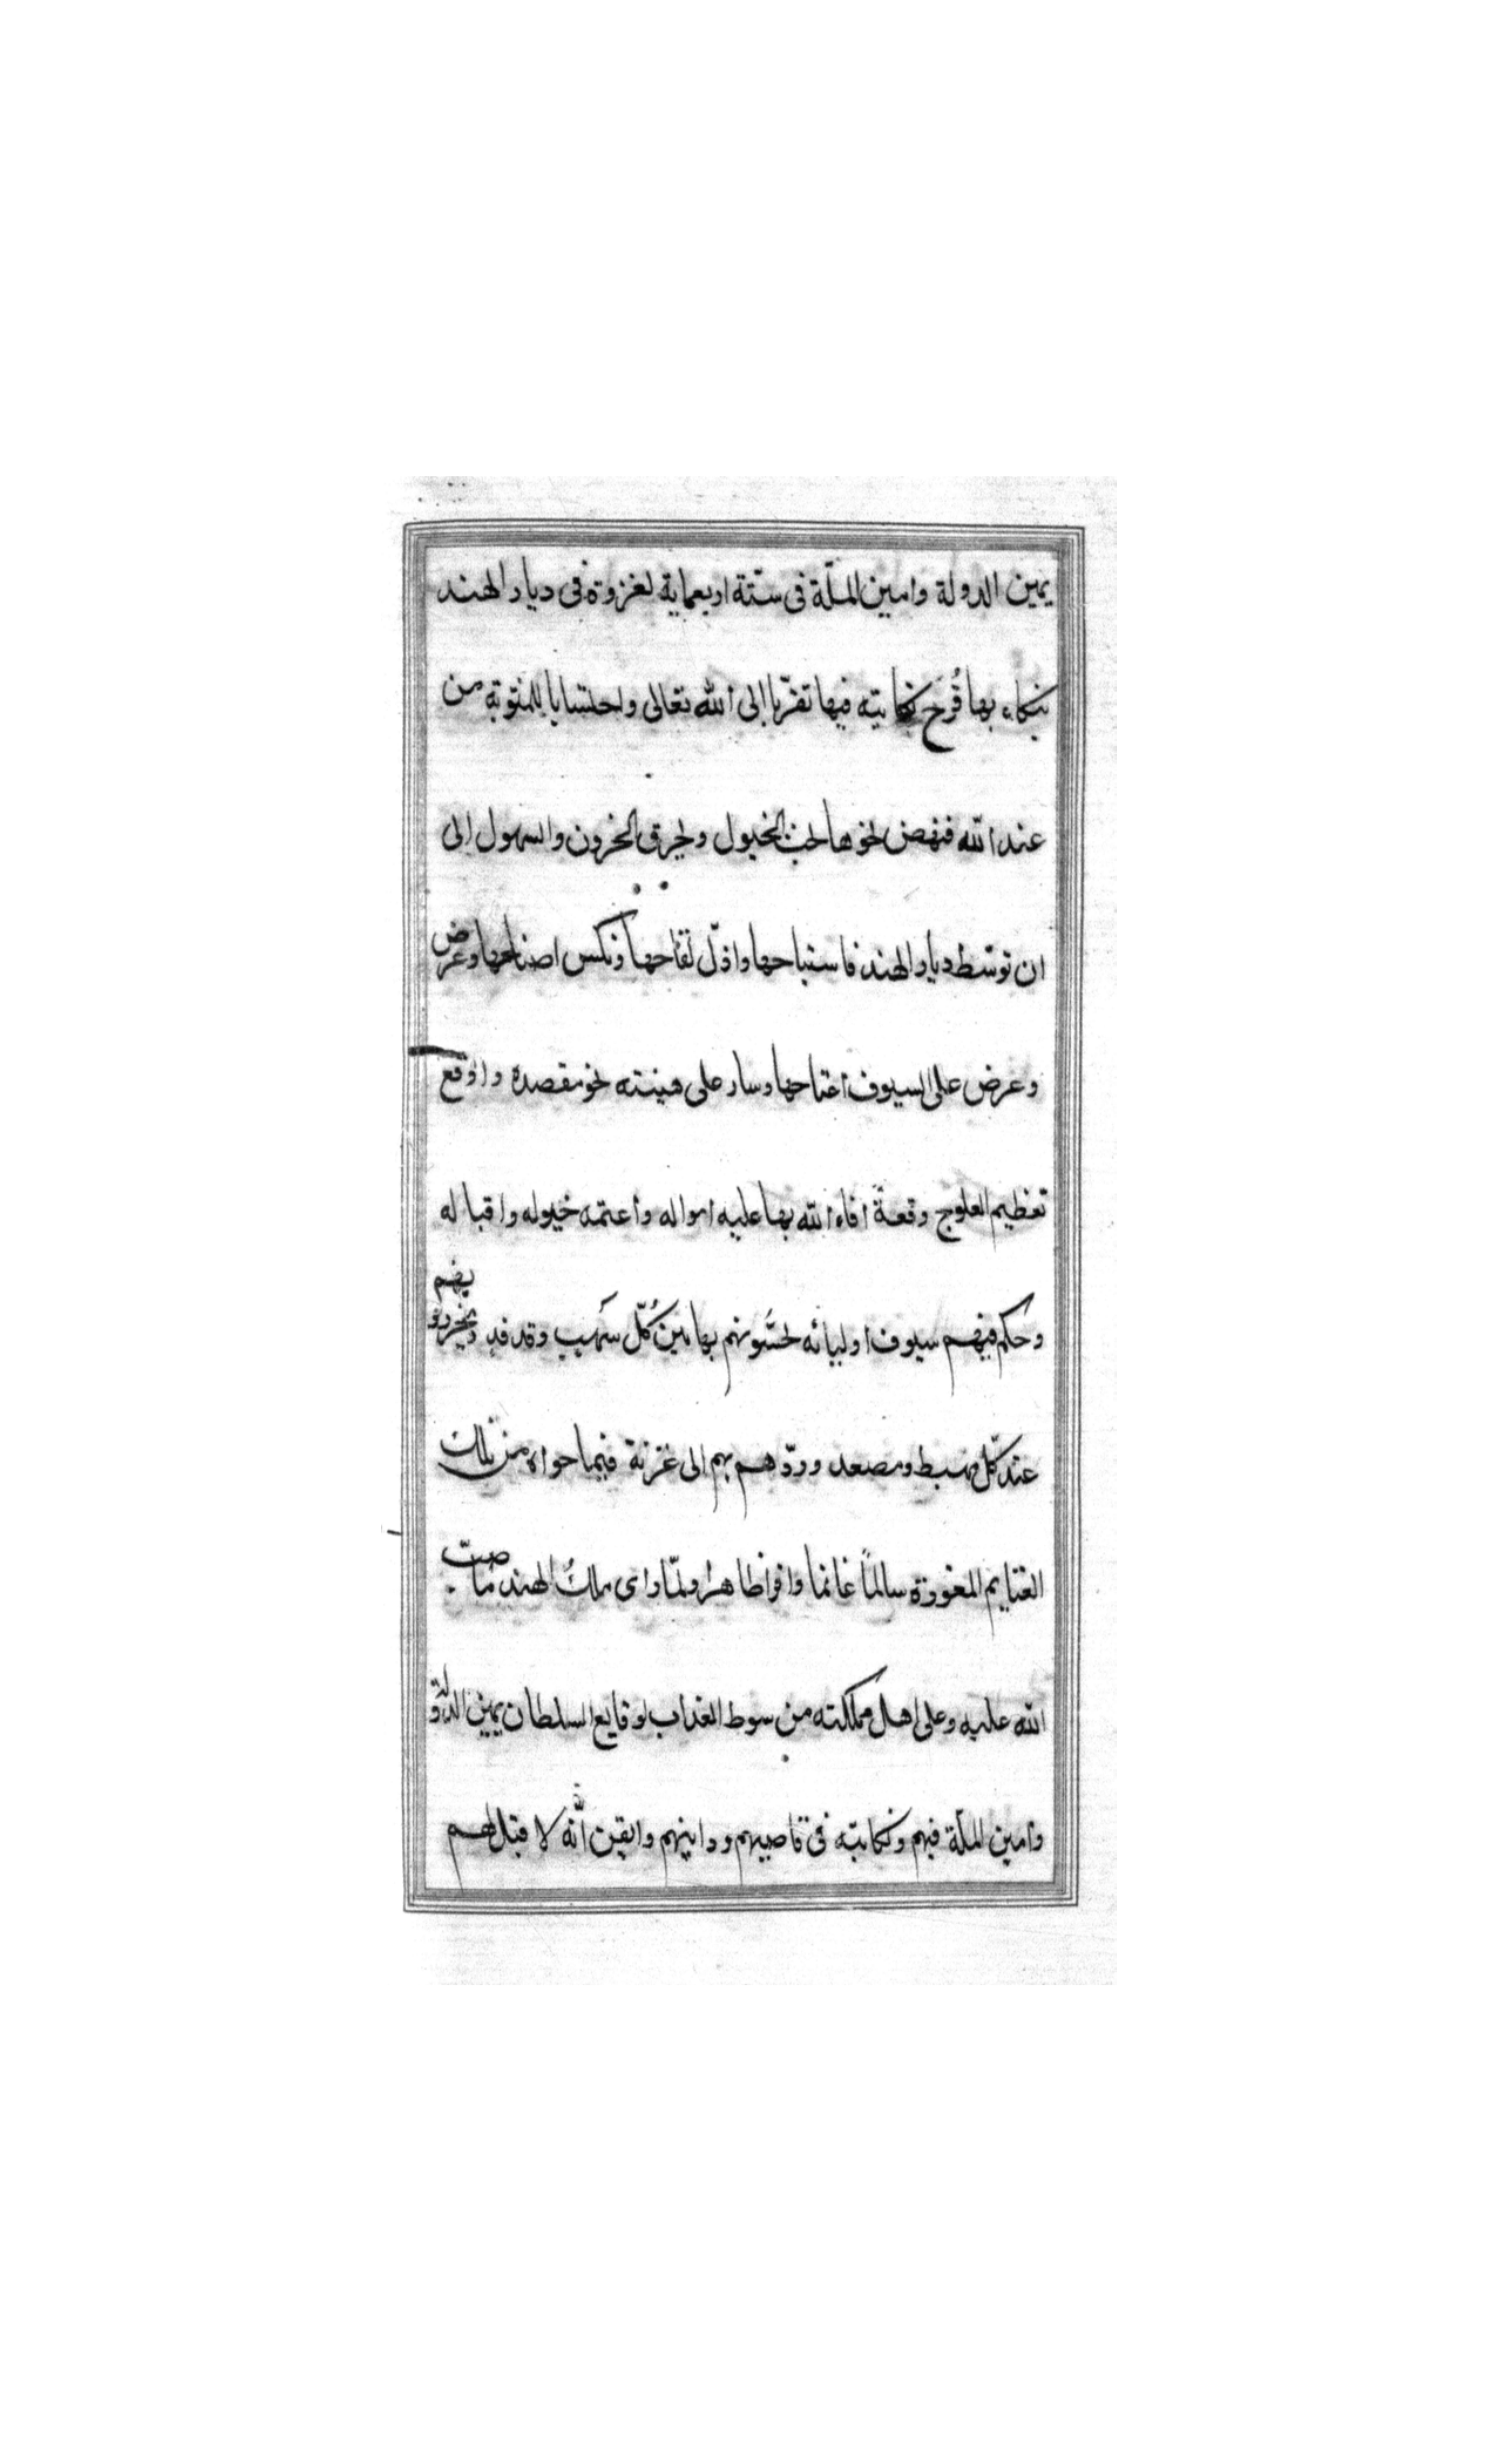 يمين الدولة وامين الملّة فى سنّة اربعماية لغزوة فى ديار الهند
ينكاء بها قُرح نكايته فيها تقرّبا إلى الله تعالى واحتسابا للمثوبة من
عند الله فنهض نحوها يحث الخيول ويحرق الحزون والسهول إلى
ان توسّط ديار الهند فاستباحها واذلّ لقاحها ونكس اصنامها وعرض
وعرض على السيوف اعتاحها وسار على هينته نحو مقصده واوقع
تعظيم العلوج وقعةً افاء الله بها عليه امواله واعتمه خيوله واقباله
وحكم فيهم سيوف اوليائه يحسُّونهم بها بين كُلّ سَهب وقد فد ويخبرونهم
عند كلّ مهبط ومصعد وردّهم بهم الى غزنة فيما حواه من تلك
الغنايم المغورة سالماً غانما وافرا ظاهرا ولمّا راى ملكُ الهند ما صبّ
الله عليه وعلى اهل مملكته من سوط العذاب لوقايع السلطان يمين الدولة
وامين الملّة فيهم ونكايته فى قاصيهم ودانيهم وايقن انّه لا قبل لهم